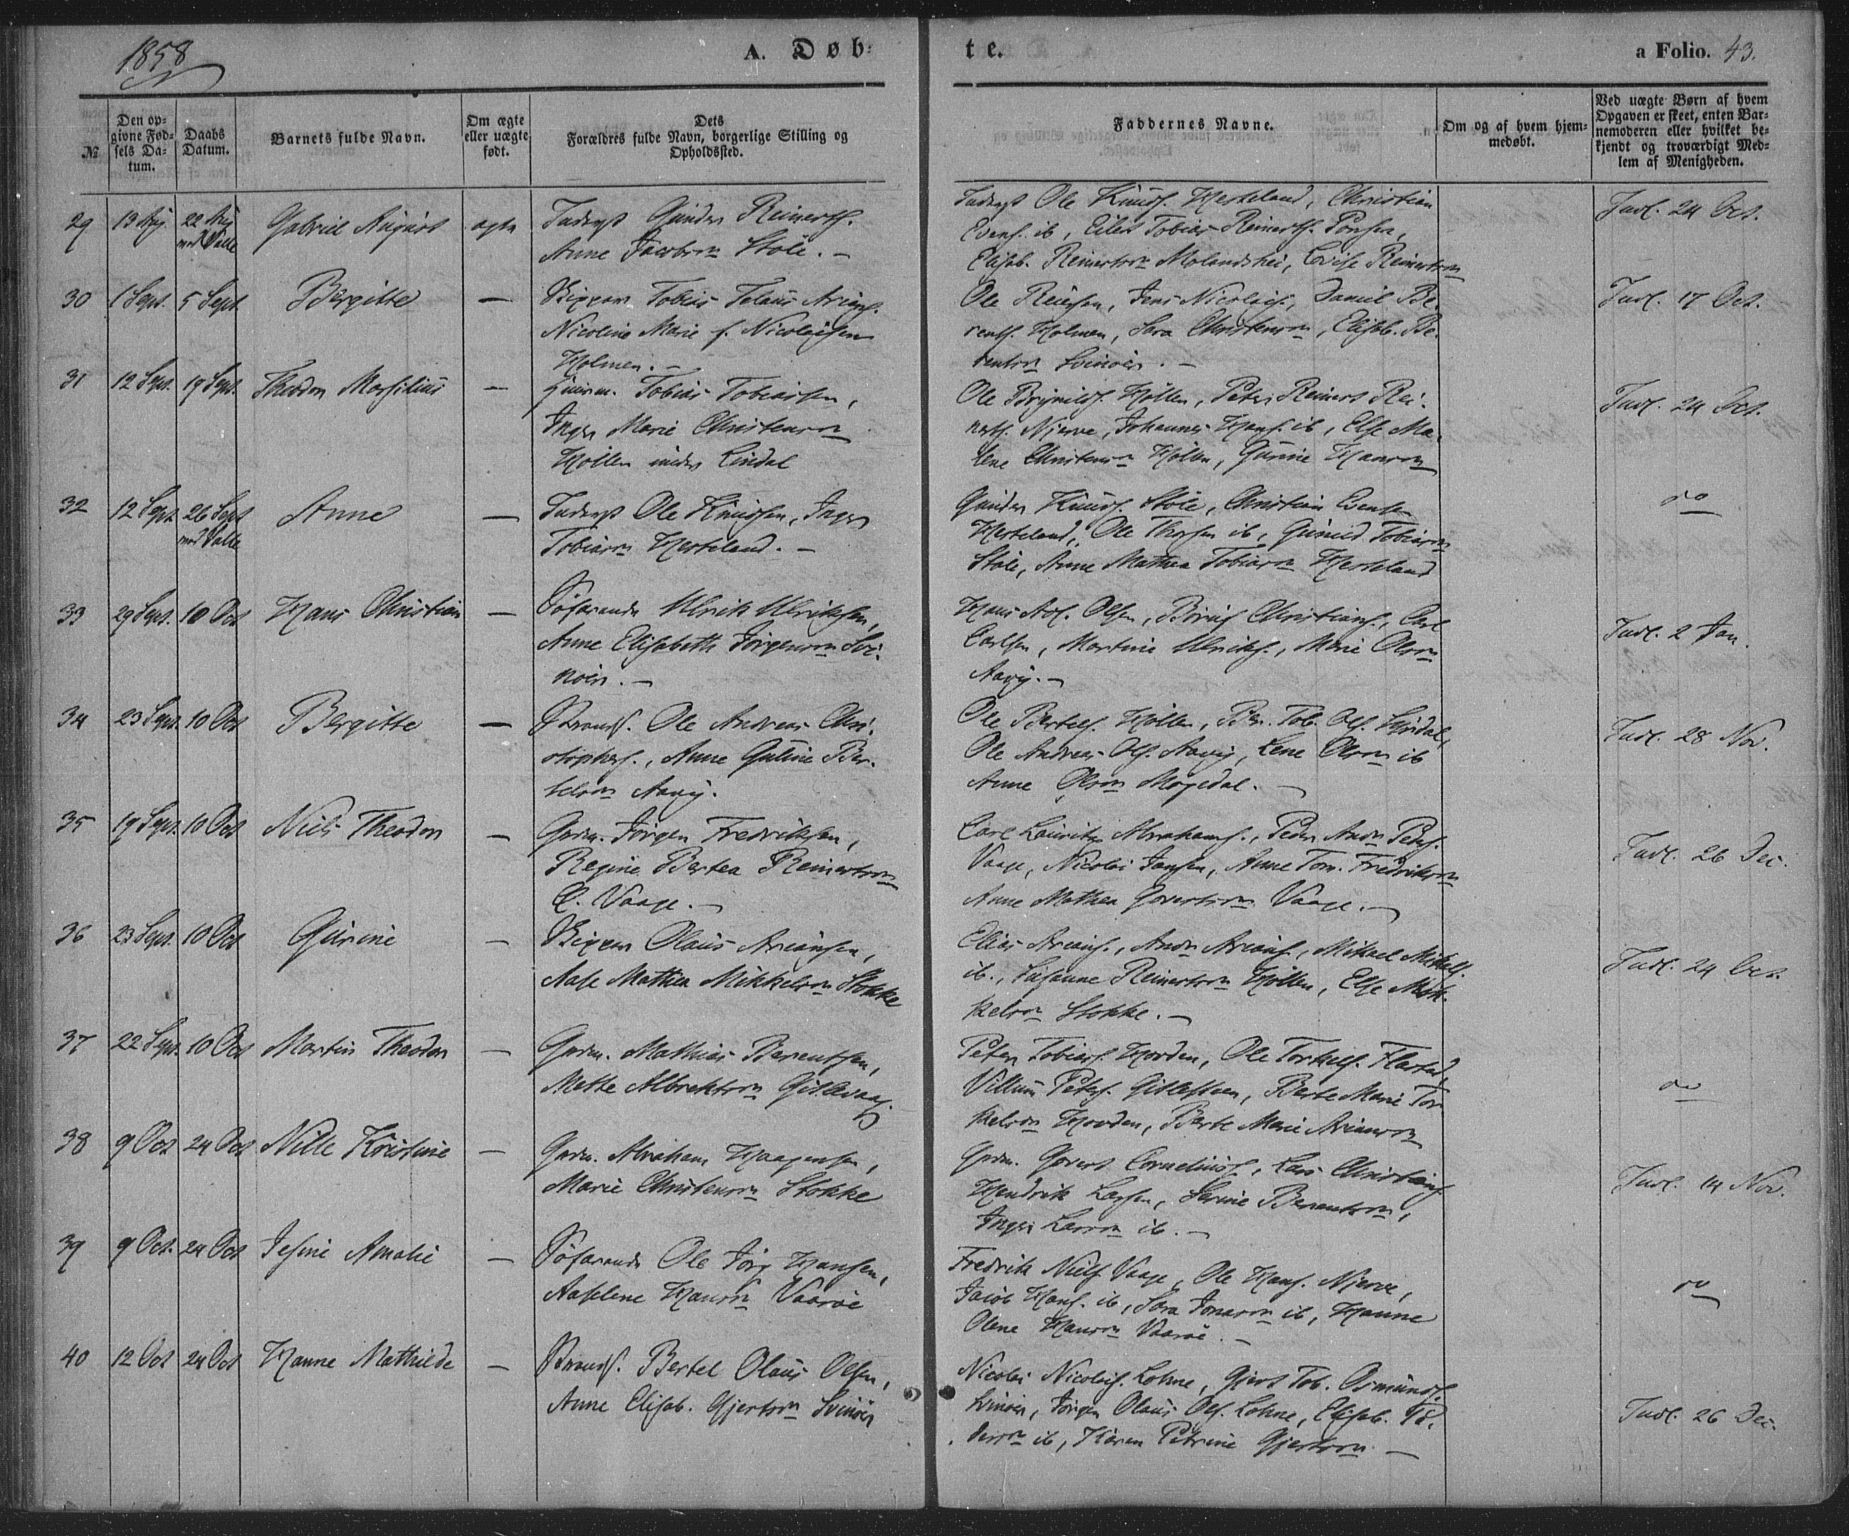 1858
A. Døb-
te.
a Folio. 43.
№
Den op-
givne Fød-
sels Da-
tum.
Daabs
Datum.
Barnets fulde Navn.
Om ægte
eller uægte
født.
Dets
Forældres fulde Navn, borgerlige Stilling og
Opholdssted.
Faddernes Navne.
Om og af hvem hjem-
medøbt.
Ved uægte Børn af hvem
Opgaven er skeet, enten Bar-
nemoderen eller hvilket be-
kjendt og troværdigt Med-
lem af Menigheden.
29 13 Aug. 22 Aug Gabriel August ægte Gunder Reinerts.
ved Valle
Anne Jacobsn Støle. —
Ole Knuds. Herkeland, Christian
Evens. ib, Eilert Tobias Reinerts.
Elisab. Reinertsn Molandshei, Lovise Reinertsn
Indl. 24 Oct.
30 1 Sept. 5 Sept Bergitte — Skipper Tobias Tolaus Arians.
Nicoline Marie f. Nicolaisen
Holmen. —
Ole Reiersen, Jens Nicolais., Daniel Be-
rents. Holmen, Sara Christensn, Elisab. Be-
rentsn Svinøer. —
Indl. 17 Oct.
31 12 Sept. 19 Sept. Theodor Marsilius — Huusm. Tobias Tobiassen,
Inger Marie Christensn
Hollen under Lindal
Ole Brynilds. Hollen, Peter Reinert Rei-
nerts. Njerve, Johannes Hans. ib, Else Ma-
lene Christensn Hollen, Gurine Hansn
Indl. 24 Oct.
32 12 Sept 26 Sept Anne — Ole Knudsen, Inger
ved Valle
Tobiasn Herkeland. —
Gunder Knuds. Støle, Christian Evensen
Herkeland, Ole Thorsen ib, Gunild Tobiasn
Støle, Anne Mathea Tobiasn Herkeland
do
33 29 Sept. 10 Oct Hans Christian — Søfarende Ulrik Ulriksen,
Anne Elisabeth Jørgensn Svi-
nøer. —
Hans Ad. Olsen, Christians., Carl
Carlsen, Martine Ulriks., Marie Olsn
Aavig. —
Indl. 2 Jan.
34 23 Sept. 10 Oct Bergitte — Strands. Ole Andreas Chri-
stophers., Anne Guline Ber-
telsn Aavig.
Ole Bertels. Hollen, Ber. Tob. Ols.
Ole Andreas Ols. Aavig, Lene Olsn ib
Anne Olsn Møgedal. —
Indl. 28 Nov.
35 19 Sept. 10 Oct Niels Theodor — Grdm. Jørgen Fredriksen,
Regine Bertea Reinertsn
Vaage. —
Carl Lauritz Abrahams., Peder Andr. Peders.
Vaage, Nicolai Jansen, Anne Tom. Fredriksn
Anne Mathea Govertsn Vaage. —
Indl. 26 Dec.
36 23 Sept. 10 Oct Gurine — Skipper Olaus Ariansen,
Aase Mathea Mikkelsn Stokke
Elias Arians., Andr. Arians., Mikael Mikkels.
ib., Susanne Reinertsn Hollen, Else Mik-
kelsn Stokke. —
Indl. 24 Oct.
37 22 Sept. 10 Oct Martin Theodor — Grdm. Mathias Berentsen,
Mette Albrektsn Gitlevaag.
Peter Tobias. Horden, Ole Torkels. Flostad,
Villum Peters. Gitlesteen, Berte Marie Tor-
kelsn Horden, Berte Marie Ariansn
do
38 9 Oct 24 Oct Nille Kristine — Grdm. Abraham Haagensen,
Marie Christensn Stokke
Grdm. Govert Cornelius., Lars Christians.
Hendrik Larsen, Serine Berentsn,
Inger Larsn ib. —
Indl. 14 Nov.
39 9 Oct. 24 Oct Jesine Amalie — Søfarende Ole Jørg. Hansen,
Aaselene Hansn Vaarøe
Fredrik Niels. Vaage, Ole Hans. Njerve,
Jacob Hans. ib, Sara Jonasn ib, Hanne
Olene Hansn Vaarøe. —
do
40 12 Oct 24 Oct Hanne Mathilde — Strands. Bertel Olaus Olsen,
Anne Elisab. Gjertsn Svinøer
Nicolai Nicolais. Lohne, Gjert Tob. Osmunds.
Svinøer, Jørgen Olaus Ols. Lohne, Elisab. Pe-
dersn ib, Karen Petrine Gjertsn —
Indl. 26 Dec.